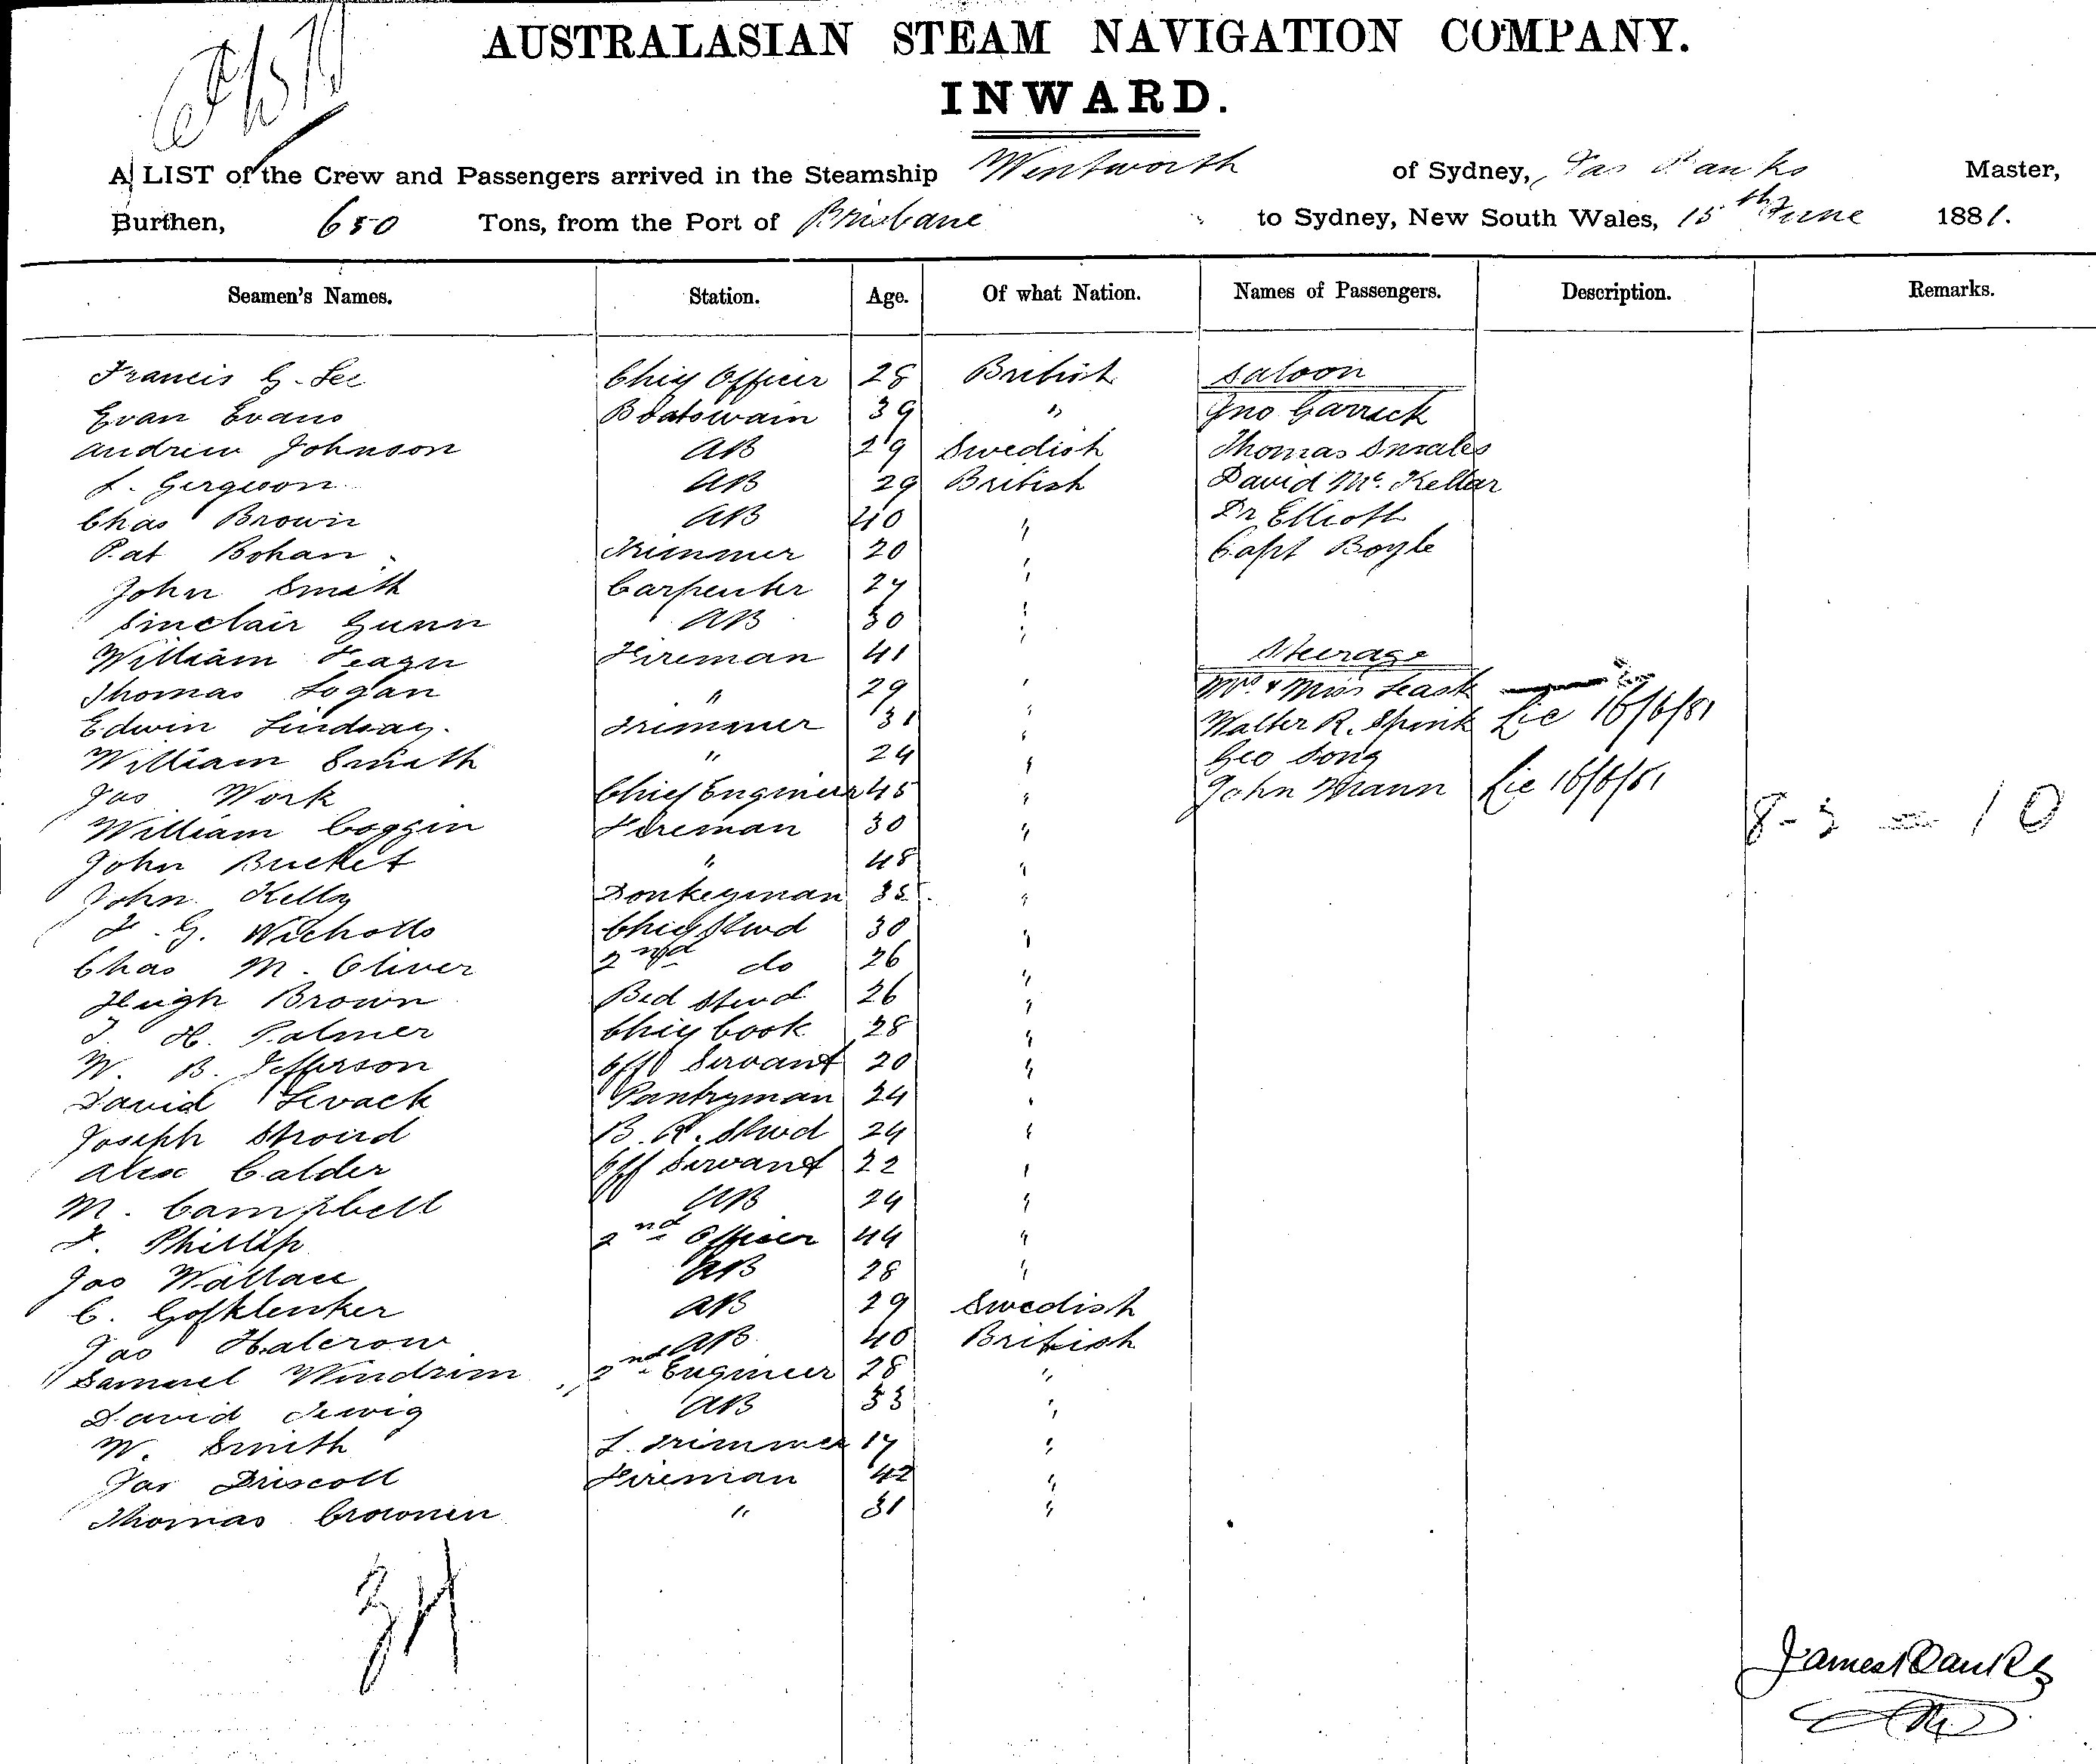 AUSTRALASIAN STEAM NAVIGATION COMPANY.
INWARD.
A LIST of the Crew and Passengers arrived in the Steamship Wentworth of Sydney, Jas Banks Master,
Burthen, 650 Tons, from the Port of Brisbane to Sydney, New South Wales, 15th June 1881.
Seamen's Names. Station. Age. Of what Nation. Names of Passengers. Description. Remarks.
Francis G. Lee Chief Officer 28 British Saloon
Evan Evans Boatswain 39 " Jno Garrick
Andrew Johnson AB 29 Swedish Thomas
 AB 29 British David McKellar
Chas Brown AB 40 " Dr Elliott
Pat Bohan Trimmer 20 " Capt Boyle
John Smith Carpenter 27 "
Sinclair Gunn AB 30 "
William Fireman 41 " Steerage
Thomas Logan " 29 " Mrs & Miss Leask
Edwin Lindsay. Trimmer 31 " Walter R. Spink Lic 16/6/81
William Smith " 24 " Geo Song
Jas Work Chief Engineer 45 " John Mann Lic 16/6/81
8-3 = 10
William Coggin Fireman 30 "
John Bucket " 48 "
John Kelly Donkeyman 35 "
G. Nicholls Chief Stwd 30 "
Chas M. Oliver 2nd do 26 "
Hugh Brown Bed Stwd 26 "
H. Palmer Chief Cook 28 "
W. B. Jefferson Off Servant 20 "
David Levack Pantryman 24 "
Joseph Stroud B. R. Stwd 24 "
Alex Calder Off Servant 22 "
M. Campbell AB 24 "
Phillip 2nd Officer 44 "
Jas Wallace AB 28 "
C. AB 29 Swedish
Jas Halcrow AB 40 British
Samuel Windrim 2nd Engineer 28 "
David AB 33 "
W. Smith Trimmer 17 "
Jas Driscoll Fireman 42 "
Thomas Crownen " 31 "
34
James Banks